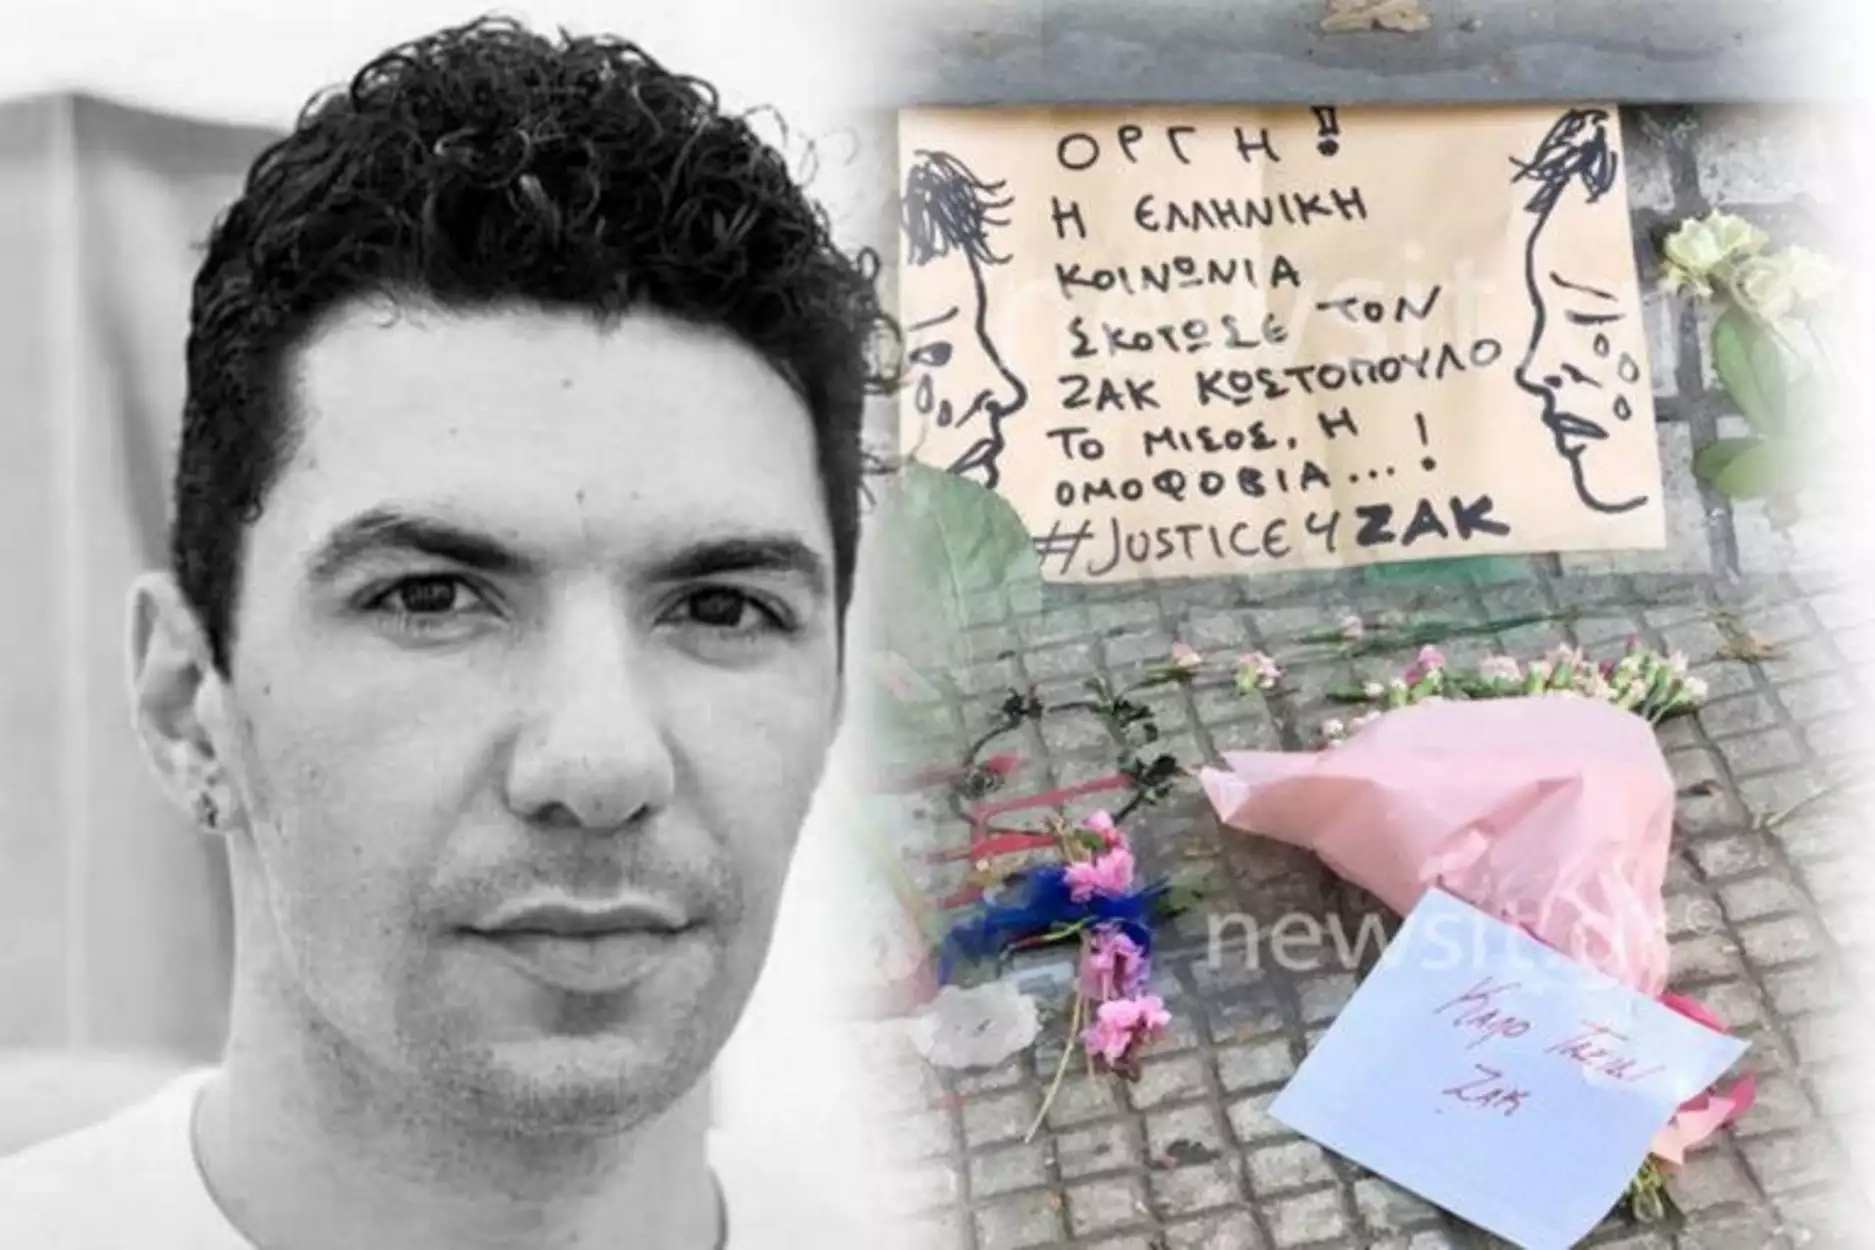 ΟΡΓΗ!!
Η ΕΛΛΗΝΙΚΗ
ΚΟΙΝΩΝΙΑ
ΣΚΟΤΩΣΕ ΤΟΝ
ΖΑΚ ΚΩΣΤΟΠΟΥΛΟ
ΤΟ ΜΙΣΟΣ, Η
ΟΜΟΦΟΒΙΑ...!
#JUSTICE4ZAK
newsit
newsit.gr©
Καλο Ταξιδι
Ζακ